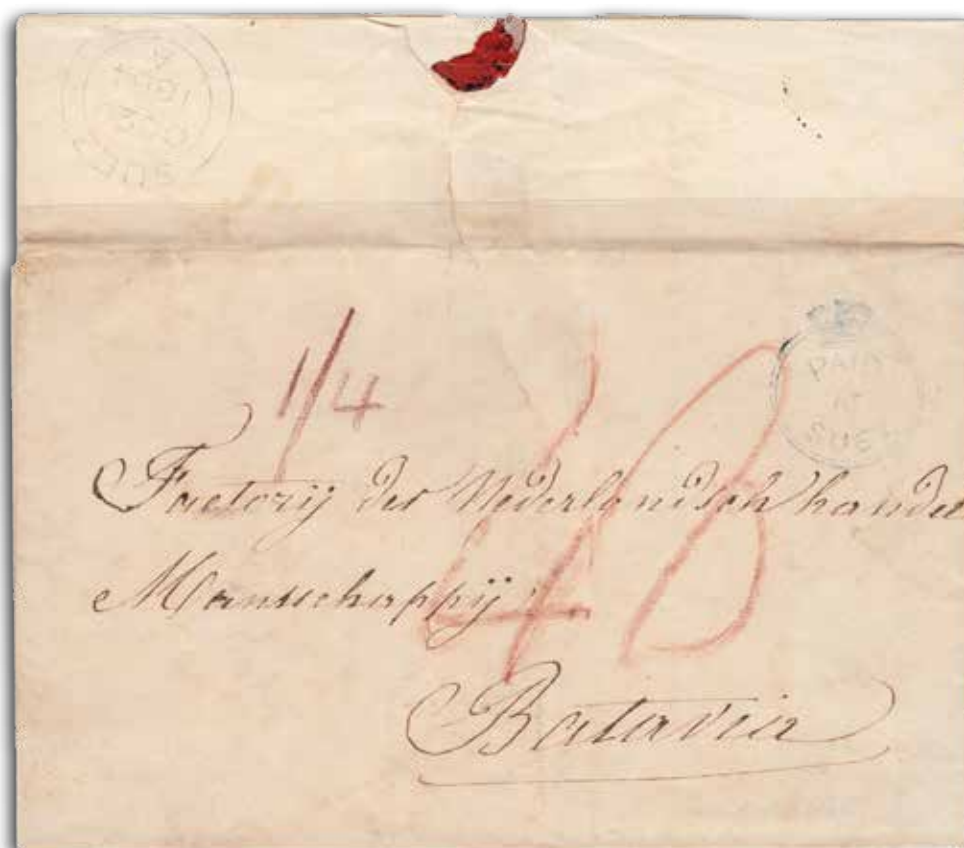 SUEZ
1/4
48
PAID
AT
SUEZ
Factorij der Nederlandsch handel
Maatschappij
Batavia